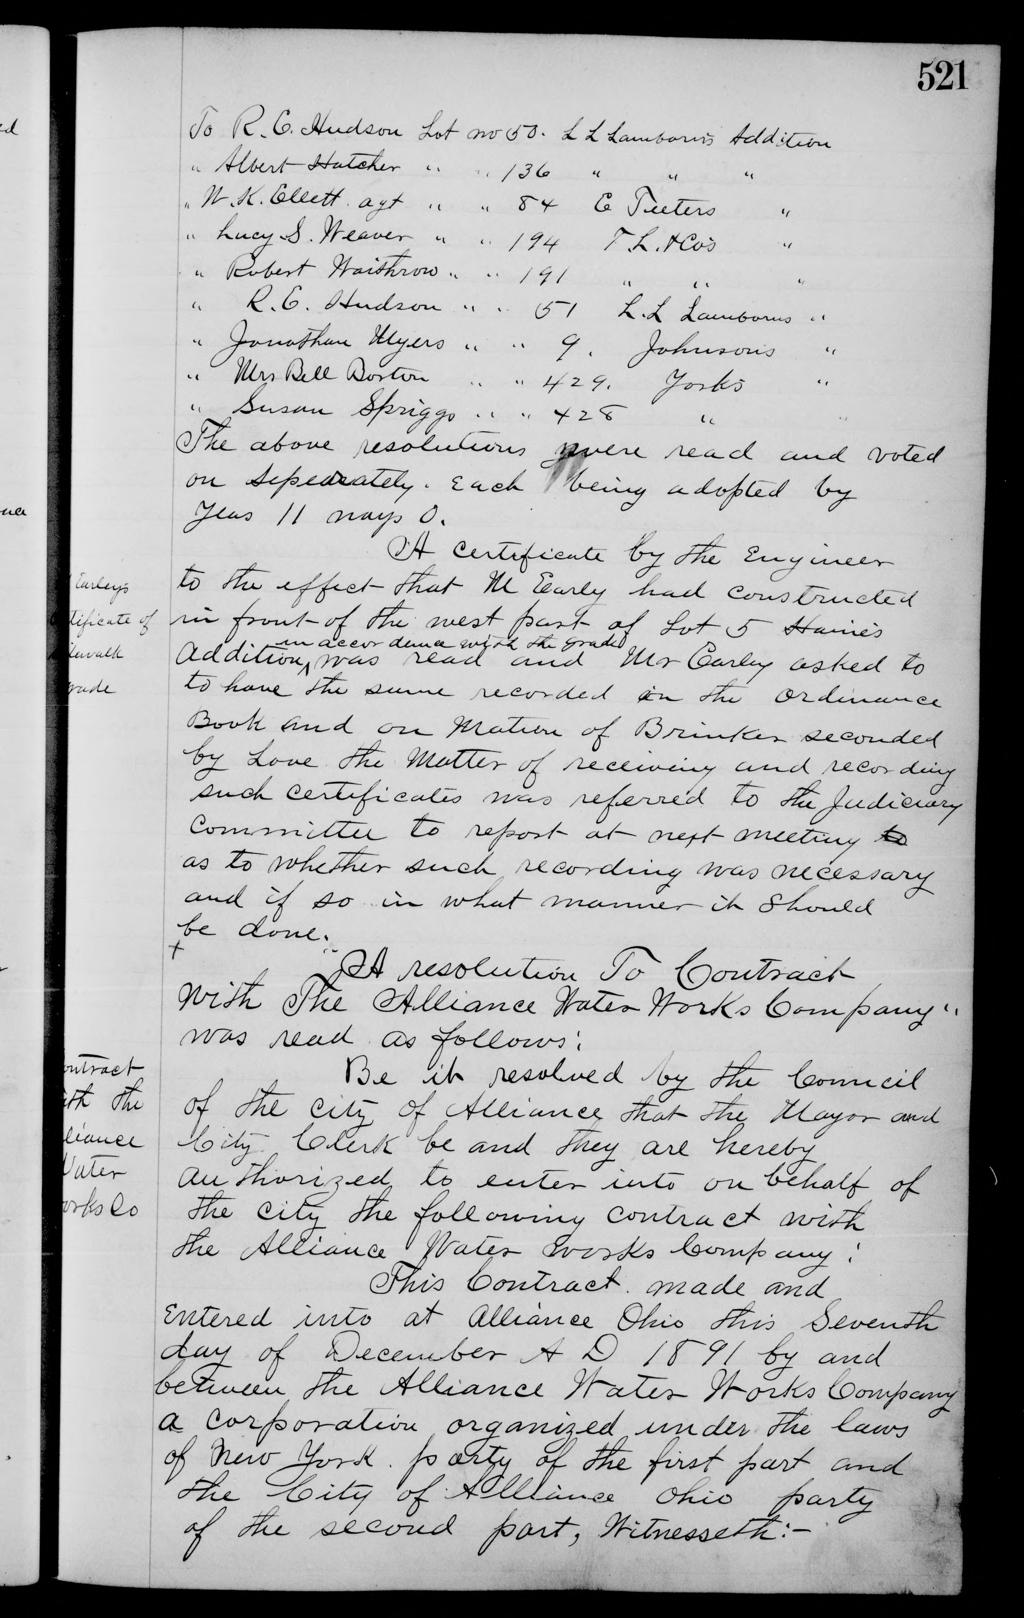 521
To R. E. Hudson Lot no 50. L L Lamborn's Addition
" Albert Hatcher " " 136 " " "
" W. K. Ellett agt " " 84 E Teeters "
" Lucy S. Weaver " " 194 T L. & Co's "
" Robert " " 191 " " "
" R. E. Hudson " " 51 L. L Lamborns "
" Jonathan Myers " " 9. Johnson's "
" Mrs Bell Boston " " 429. York's "
" Susan Spriggs " " 428 " "
The above resolutions were read and voted
on seperately. Each being adopted by
Yeas 11 nays 0.
A certificate by the Engineer
to the effect that M Early had constructed
in front of the west part of Lot 5 Haines
in accordance with the grade
Addition, was read and Mr Earley asked to
to have the same recorded in the Ordinance
Book and on Motion of Brinker seconded
by Love the Matter of receiving and recording
such certificates was referred to the Judiciary
Committee to report at next meeting to
as to whether such recording was necessary
and if so in what manner it should
be done.
A resolution To Contract
With The Alliance Water Works Company"
was read as follows:
Be it resolved by the Council
of the city of Alliance that the Mayor and
City Clerk be and they are hereby
authorized to enter into on behalf of
the city the following contract with
the Alliance Water Works Company:
This Contract made and
Entered into at Alliance Ohio this Seventh
day of December A D 1891 by and
between the Alliance Water Works Company
a corporation organized under the laws
of New York party of the first part and
the City of Alliance Ohio party
of the second part, Witnesseth:-
Earleys
tificate of
dewalk
rade
ontract
ith the
liance
Water
orks Co